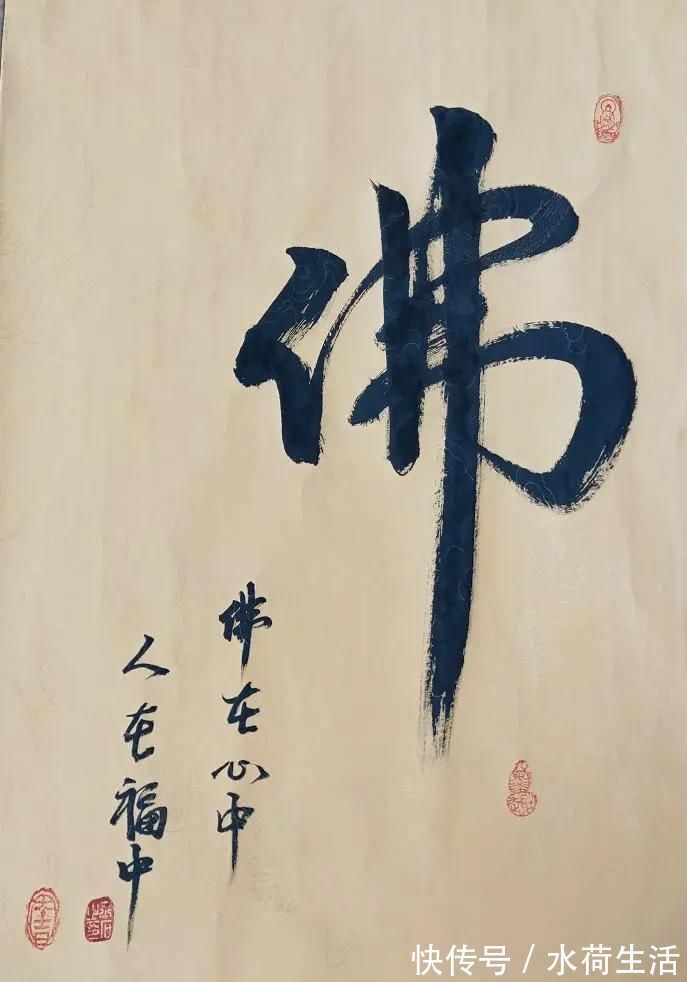 佛
佛在心中
人在福中
快传号 / 水荷生活